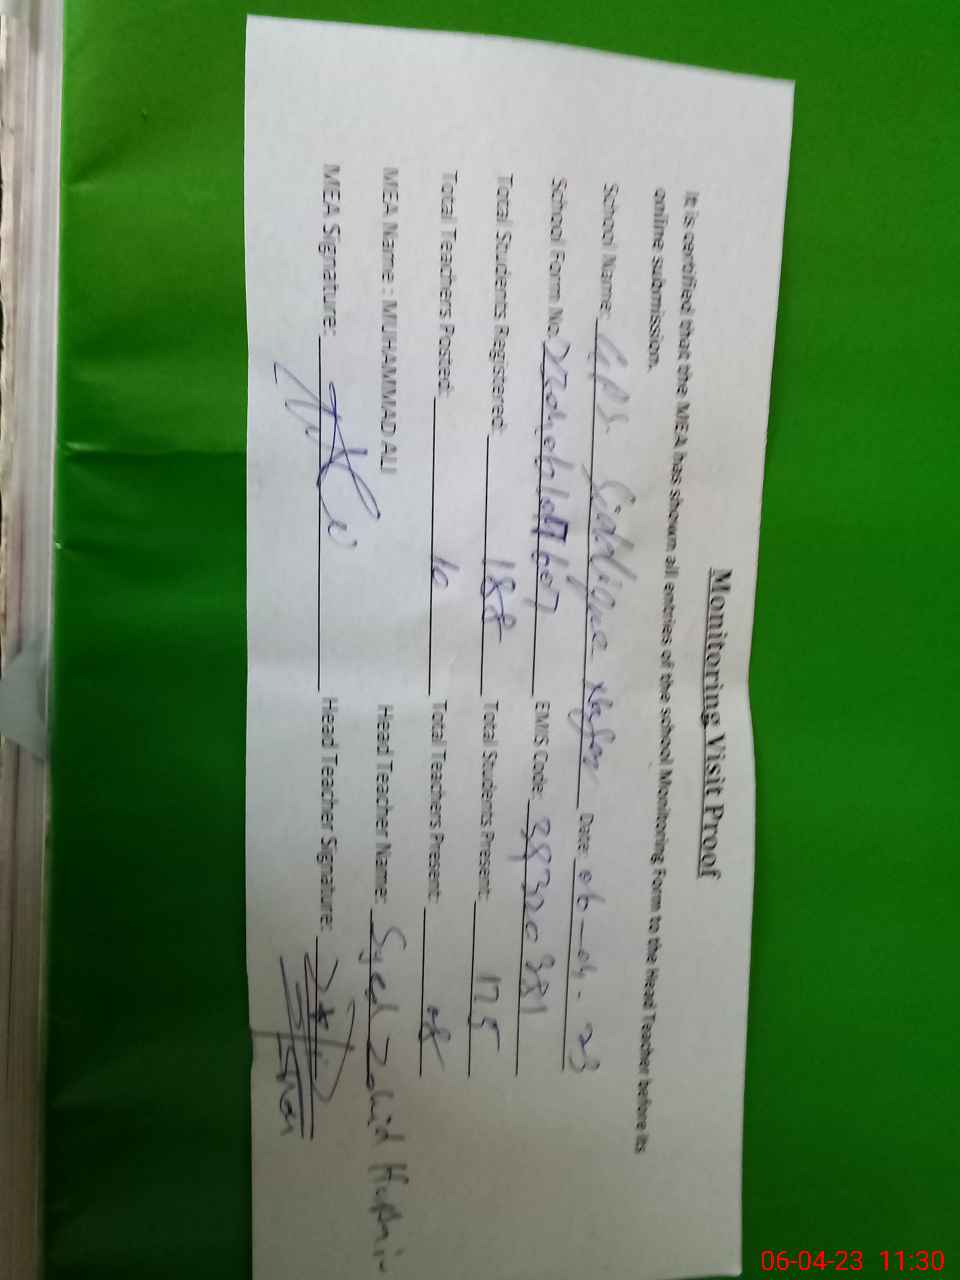 Monitoring Visit Proof
It is certified that the MEA has shown all entries of the school Monitoring Form to the Head Teacher before its
online submission.
School Name: GPS. Siddique Date: 06-04-23
School Form No. EMIS Code: 38320381
Total Students Registered: 188 Total Students Present: 175
Total Teachers Posted: 10 Total Teachers Present: 08
MEA Name : MUHAMMAD ALI Head Teacher Name: Syed Zahid
MEA Signature: Head Teacher Signature:
06-04-23 11:30